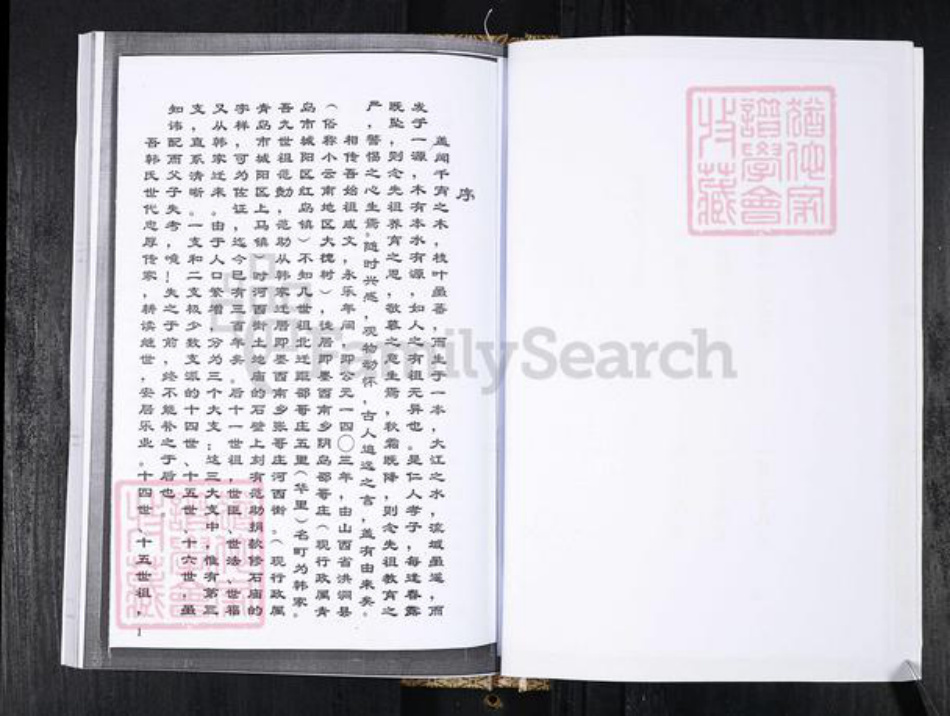 序
盖闻千寻之木，枝叶虽番，而生于一本，大江之水，流域虽遥，而
发于一源，木有本水有源，如人之有祖无异也。是仁人孝子，每逢春露
既坠，则念先祖养育之恩，敬慕之意生焉，秋霜既降，则念先祖教育之
严，警惕之心生焉。随时兴感，观物动怀，古人追远之言，盖有由来矣。
相传吾始祖成文，永乐年间，即公元一四〇三年，由山西省洪洞县
（俗称小云南地区大槐树），徙居即墨西南乡阴岛邵哥庄（现行政属青
岛市城阳区红岛镇）不知几世祖北迁距邵哥庄五里（华里）名町为韩家。
吾九世祖范勋，范助从韩家迁居即墨西南乡张哥庄河西街。（现行政属
青岛市城阳区上马镇）时河西街土地庙的石壁上刻有范助捐款修石庙的
字样，可为佐证，迄今已有三百年矣。后十一世祖，世臣、世法、世福
又从韩家迁来。由于人口繁增，分为三个大支；这三大支中，惟有第三
支，直系清晰。一支和二支极少数支派的十四世、十五世、十六世，虽
知讳配而父子失考，噫！失之于前，终不能补之于后也
吾韩氏世代忠厚传家，耕读继世，安居乐业。十四世、十五世祖，
1
FamilySearch